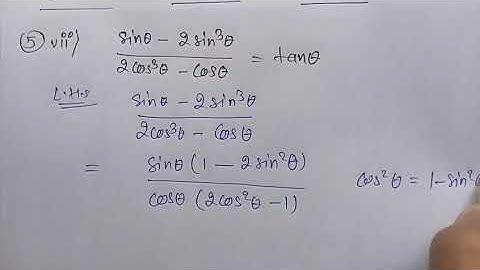 ⑤ viii) (sinθ − 2sin³θ) / (2cos³θ − cosθ) = tanθ
L.H.S (sinθ − 2sin³θ) / (2cos³θ − cosθ)
= sinθ (1 − 2sin²θ) / cosθ (2cos²θ − 1)
cos²θ = 1 − sin²θ